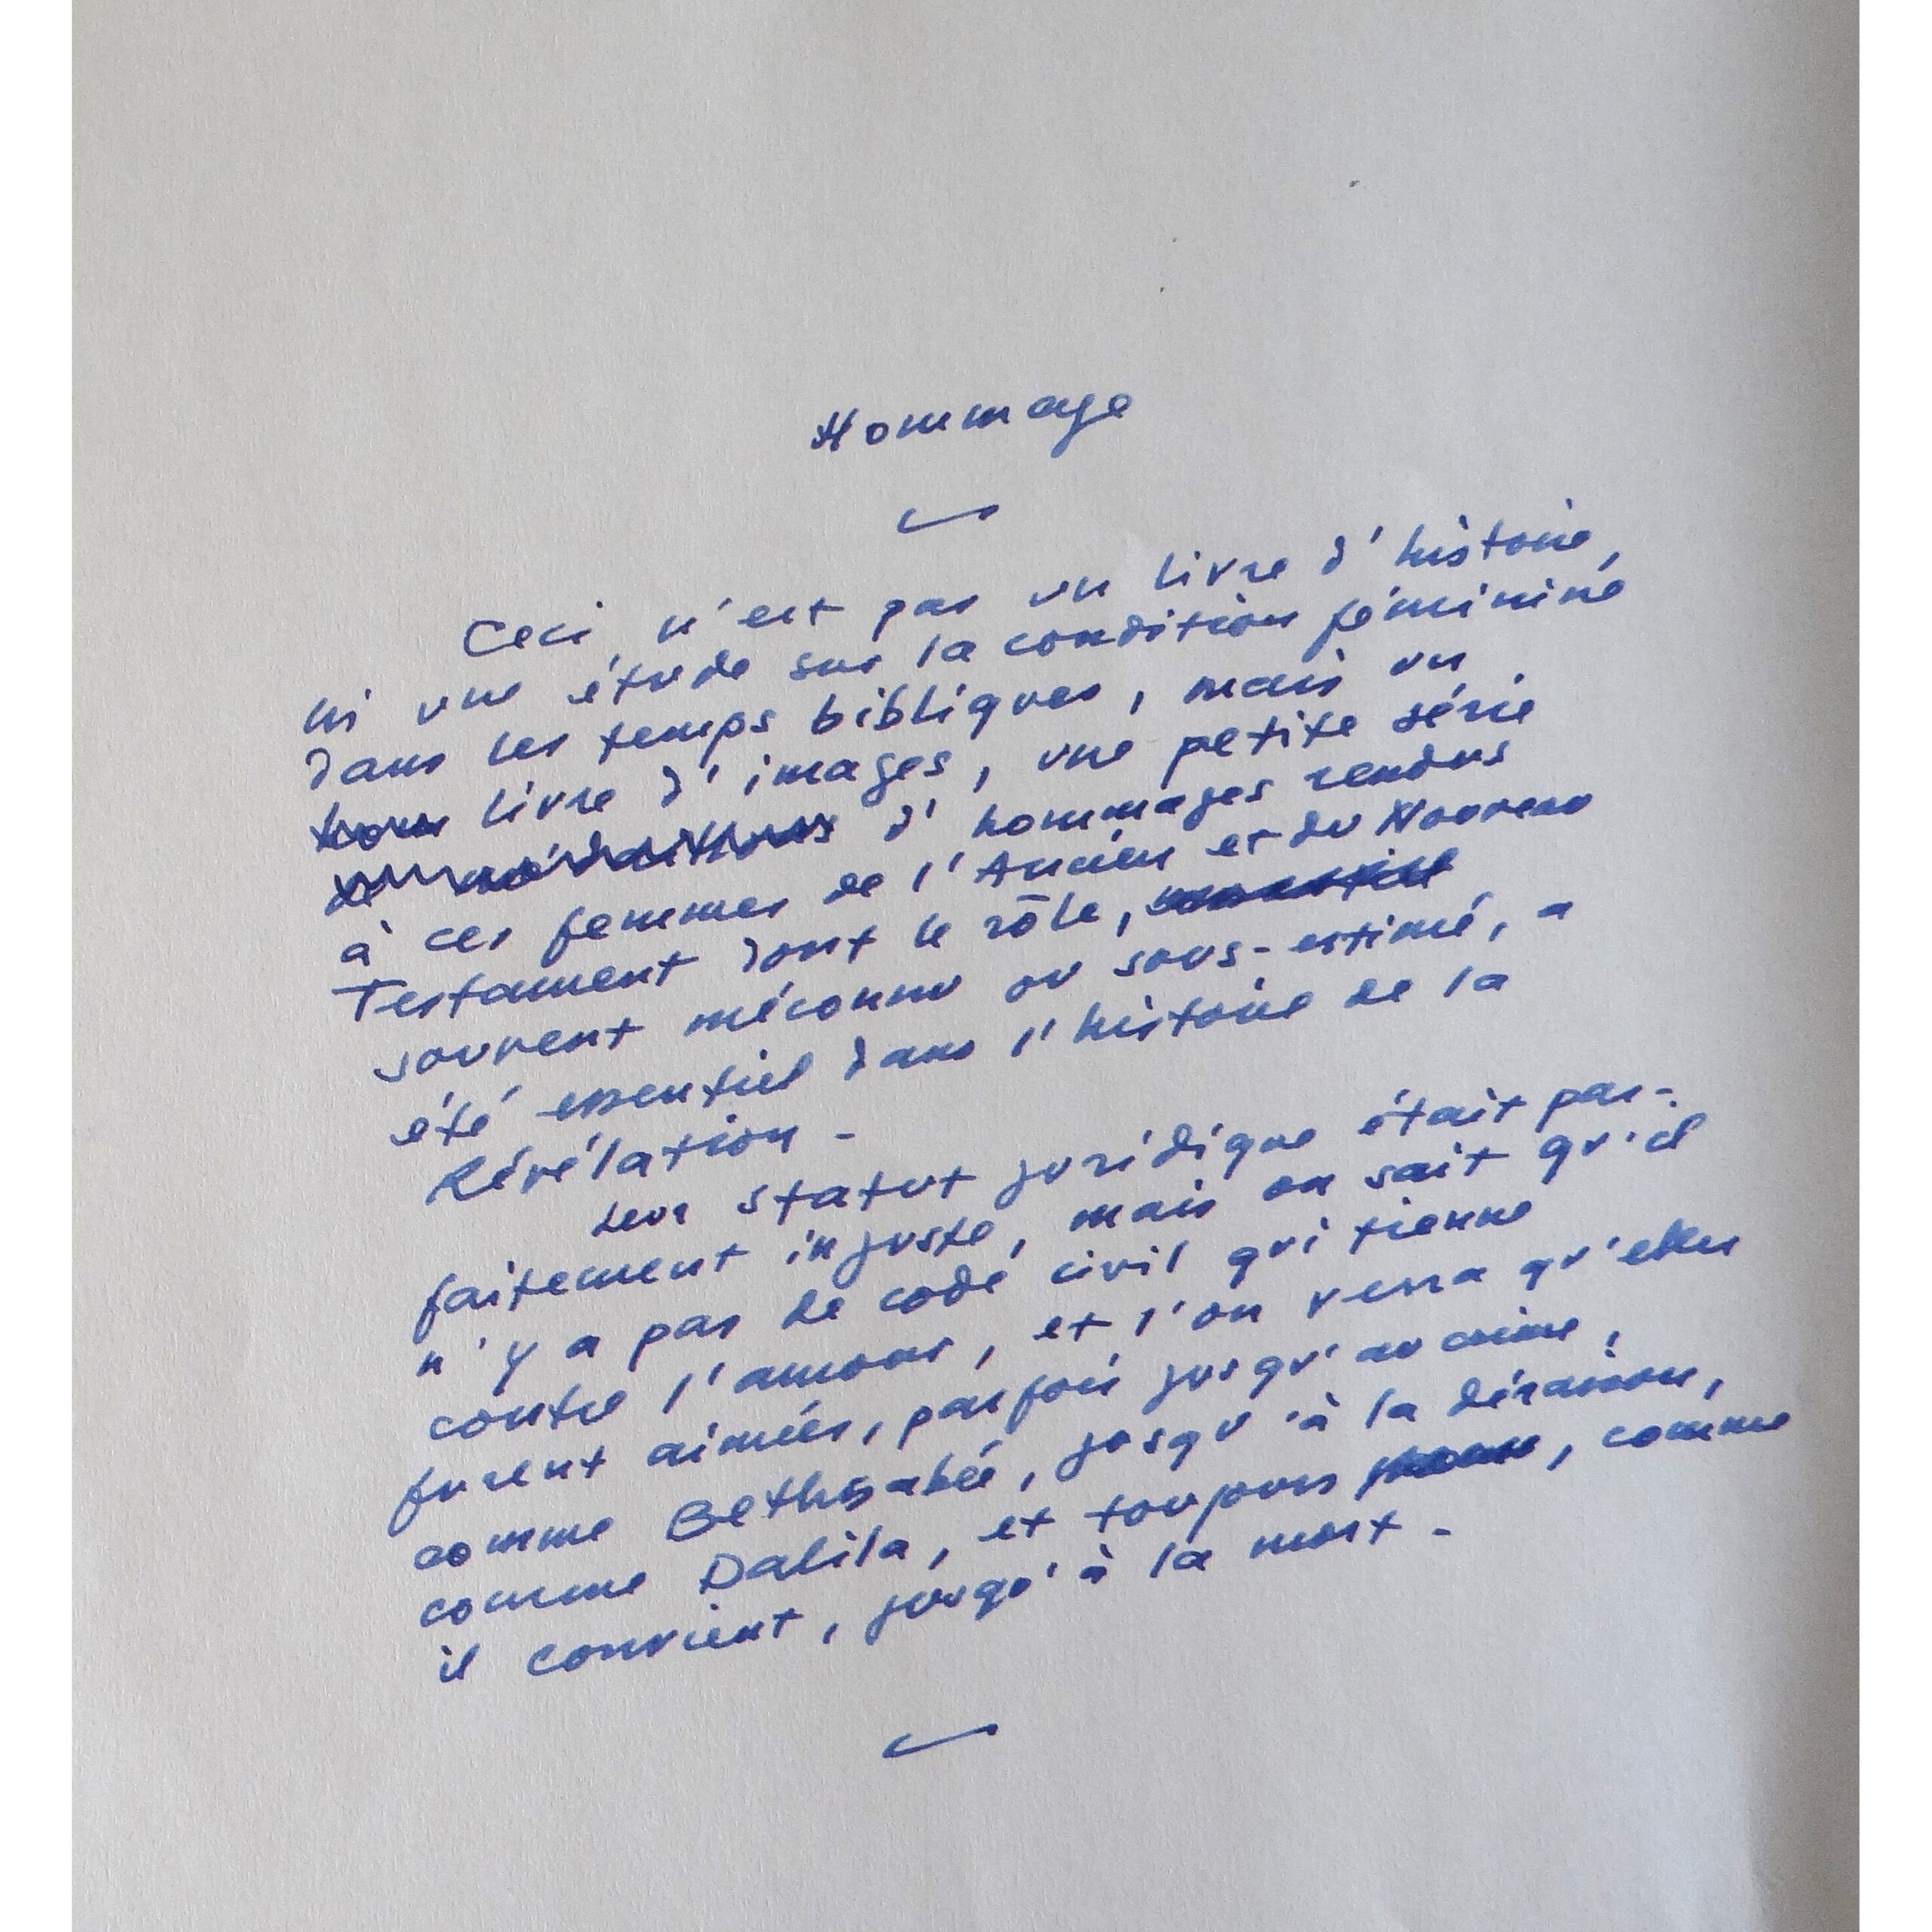 Hommage
Ceci n'est pas un livre d'histoire,
ni une étude sur la condition féminine
dans les temps bibliques, mais un
livre d'images, une petite série
d'hommages rendus
à ces femmes de l'Ancien et du Nouveau
Testament dont le rôle,
souvent méconnu ou sous-estimé, a
été essentiel dans l'histoire de la
Révélation -
Leur statut juridique était par-
faitement injuste, mais on sait qu'il
n'y a pas de code civil qui tienne
contre l'amour, et l'on verra qu'elles
furent aimées, parfois jusqu'au crime,
comme Bethsabée, jusqu'à la déraison,
comme Dalila, et toujours, comme
il convient, jusqu'à la mort -